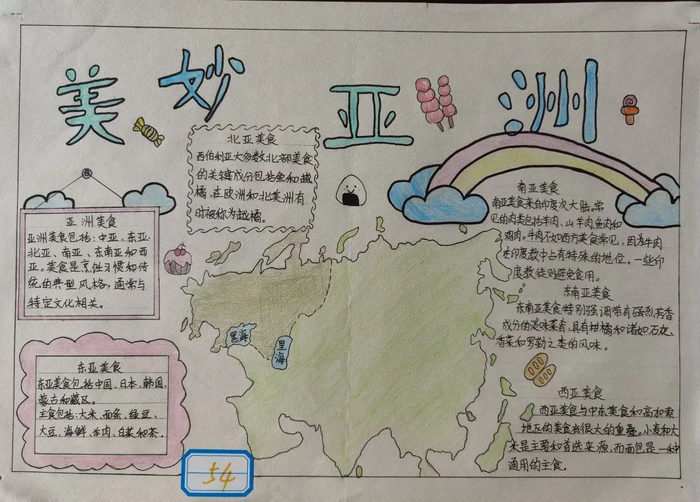 美妙亚洲
北亚美食
西伯利亚大多数北部美食
的关键成分包括鱼和越
橘,在欧洲和北美洲有
时被称为越橘。
亚洲美食
亚洲美食包括:中亚、东亚
北亚、南亚、东南亚和西
亚。美食是烹饪习惯和传
统的典型风格,通常与
特定文化相关。
东亚美食
东亚美食包括中国、日本、韩国、
蒙古和藏区。
主食包括:大米、面条、绿豆、
大豆、海鲜、羊肉、白菜和茶。
南亚美食
南亚美食来自印度次大陆。常
见的肉类包括羊肉、山羊肉鱼肉和
鸡肉。牛肉不如西方美食常见,因为牛肉
在印度教中占有特殊的地位。一些印
度教徒则避免食用。
东南亚美食
东南亚美食特别强调带有强烈芳香
成分的美味菜肴,具有柑橘和诸如石灰,
香菜和罗勒之类的风味。
西亚美食
西亚美食与中东美食和高加索
地区的美食有很大的重叠。小麦和大
米是主要和首选来源,而面包是一种
通用的主食。
黑海
里海
54